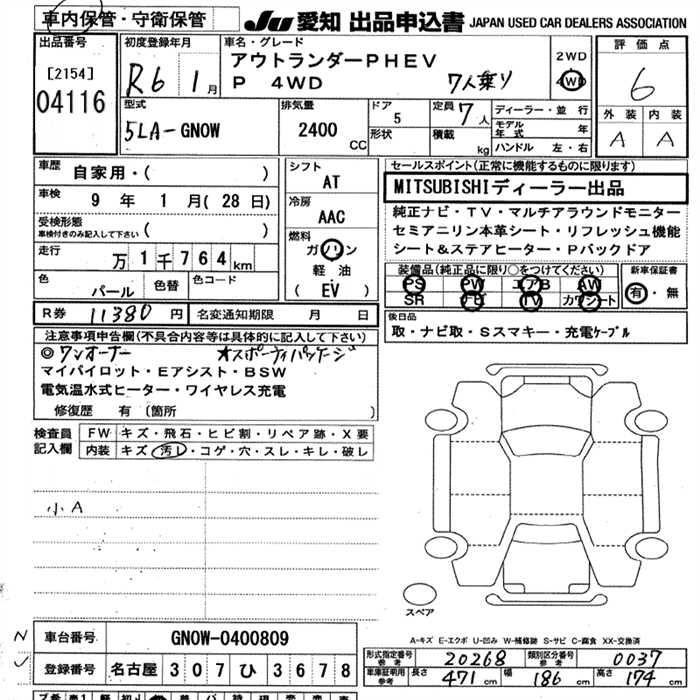 車内保管・守衛保管
JU 愛知 出品申込書 JAPAN USED CAR DEALERS ASSOCIATION
出品番号 [2154] 04116
初度登録年月 R6 1月
車名・グレード アウトランダーPHEV
P 4WD 7人乗り
2WD
4WD
評価点 6
外装 A 内装 A
型式 5LA-GN0W
排気量 2400 CC
ドア 5
形状
定員 7人
積載 kg
ディーラー・並行
モデル年式 年
ハンドル 左・右
車歴 自家用・( )
車検 9年 1月(28日)
受検形態
車検付きのみ記入して下さい ( )
走行 万1千764km
色 パール 色替 色コード
シフト AT
冷房 AAC
燃料 ガソリン
軽油
( EV )
R券 11380円 名変通知期限 月 日
セールスポイント(正常に機能するものに限ります)
MITSUBISHIディーラー出品
純正ナビ・TV・マルチアラウンドモニター
セミアニリン本革シート・リフレッシュ機能
シート&ステアヒーター・Pバックドア
装備品(純正品に限り○をつけてください)
PS PW エアB AW
SR ナビ TV カワシート
新車保証書 有・無
後日品
取・ナビ取・Sスマキー・充電ケーブル
注意事項申告欄(不具合内容等は具体的に記入して下さい)
◎ワンオーナー ★スポーティパッケージ
マイパイロット・Eアシスト・BSW
電気温水式ヒーター・ワイヤレス充電
修復歴 有 (箇所 )
検査員記入欄
FW キズ・飛石・ヒビ割・リペア跡・X要
内装 キズ・汚レ・コゲ・穴・スレ・キレ・破レ
小A
スペア
A-キズ E-エクボ U-凹み W-補修跡 S-サビ C-腐食 XX-交換済
N 車台番号 GN0W-0400809
レ 登録番号 名古屋 307 ひ 3678
形式指定番号 参考 20268 類別区分番号 参考 0037
車庫証明用 参考 長さ 471cm 幅 186cm 高さ 174cm